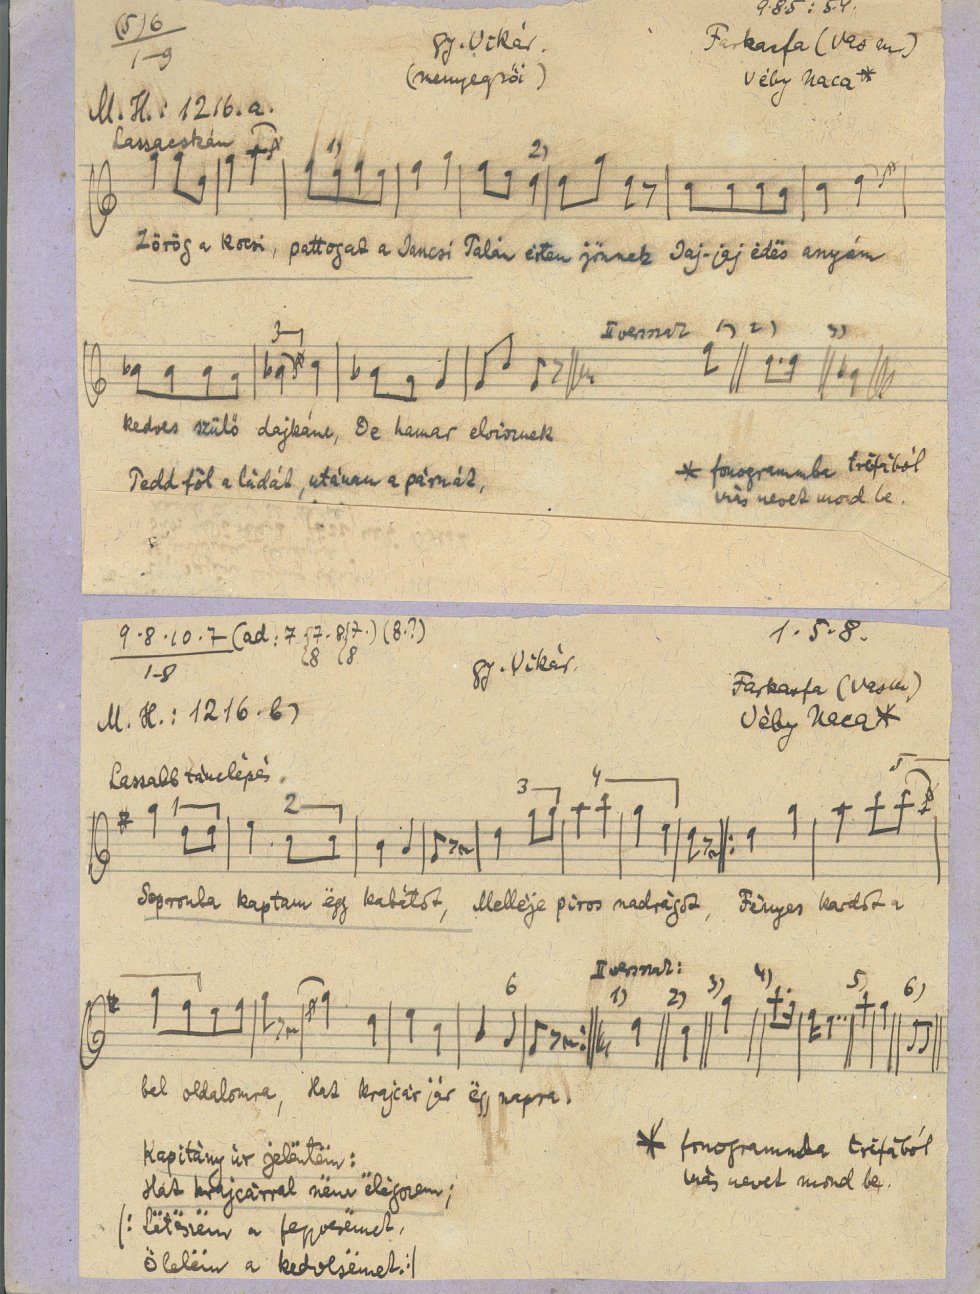 (5) 6
1-9
gy. Vikár.
(menyegzői)
9·8·5 : 5·4.
Farkasfa (Vas m.)
Véby Naca*
M. H.: 1216. a.
Lassacskán
1) 2)
Zörög a kocsi, pattogat a Jancsi Talán érten jönnek Jaj-jaj édës anyám
3
II versszak 1) 2) 3)
kedves szülő dajkám, De hamar elvisznek
Tedd föl a ládát, utánam a párnát,
* fonogrammba tréfából
más nevet mond be.
9·8·10·7 (ad: 7 {7· 8{7.) (8.?)
8 8
1-8
gy. Vikár.
1·5·8.
Farkasfa (Vas m.)
Véby Naca*
M. H.: 1216. b)
Lassabb tánclépés.
1 2 3 4 5
Sopronba kaptam ëgy kabátot, Melléje piros nadrágot, Fényes kardot a
6
II versszak:
1) 2) 3) 4) 5) 6)
bal oldalomra, Hat krajcár jár ëgy napra.
Kapitány úr jelentëm:
Hat krajcárral nëm ëlégszem;
|: Lëtëszëm a fegyverëmet,
Ölelëm a kedvesëmet. :|
* fonogrammba tréfából
más nevet mond be.